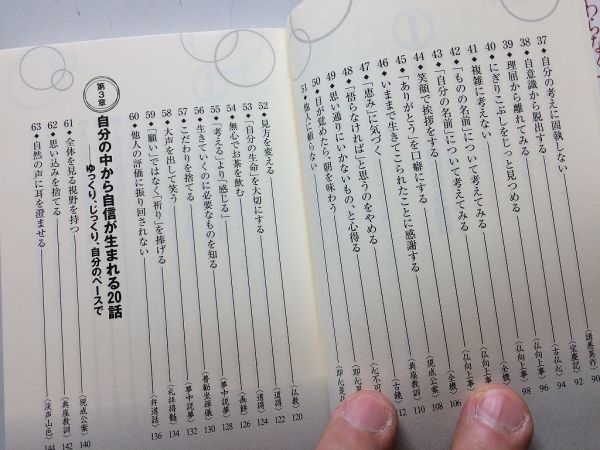 37 ◆ 自分の考えに固執しない 〈諸悪莫作〉 90
38 ◆ 自意識から脱出する 〈宝慶記〉 92
39 ◆ 理屈から離れてみる 〈古仏心〉 94
40 ◆ にぎりこぶしをじっと見つめる 〈仏向上事〉 96
41 ◆ 複雑に考えない 98
42 ◆ 「ものの名前」について考えてみる 〈仏向上事〉
43 ◆ 「自分の名前」について考えてみる 〈全機〉 106
44 ◆ 笑顔で挨拶をする 〈現成公案〉 108
45 ◆ 「ありがとう」を口癖にする 〈典座教訓〉 110
46 ◆ いままで生きてこられたことに感謝する 〈古鏡〉 112
47 ◆ 「恵み」に気づく
48 ◆ 「悟らなければ」と思うのをやめる
49 ◆ 思い通りにいかないもの、と心得る
50 ◆ 目が覚めたら、朝を味わう
51 ◆ 他人に頼らない
52 ◆ 見方を変える 〈仏教〉 120
53 ◆ 「自分の生命」を大切にする 〈道得〉 122
54 ◆ 無心でお茶を飲む 〈道得〉 124
55 ◆ 「考える」より「感じる」 〈画餅〉 126
56 ◆ 生きていくのに必要なものを知る 〈夢中説夢〉 128
57 ◆ こだわりを捨てる 〈普勧坐禅儀〉 130
58 ◆ 大声を出して笑う 〈夢中説夢〉 132
59 ◆ 「願い」ではなく「祈り」を捧げる 〈礼拝得髄〉 134
60 ◆ 他人の評価に振り回されない 〈弁道話〉 136
第3章
自分の中から自信が生まれる20話
ゆっくり、じっくり、自分のペースで
61 ◆ 全体を見る視野を持つ 〈現成公案〉 140
62 ◆ 思い込みを捨てる 〈典座教訓〉 142
63 ◆ 自然の声に耳を澄ませる 〈渓声山色〉 144